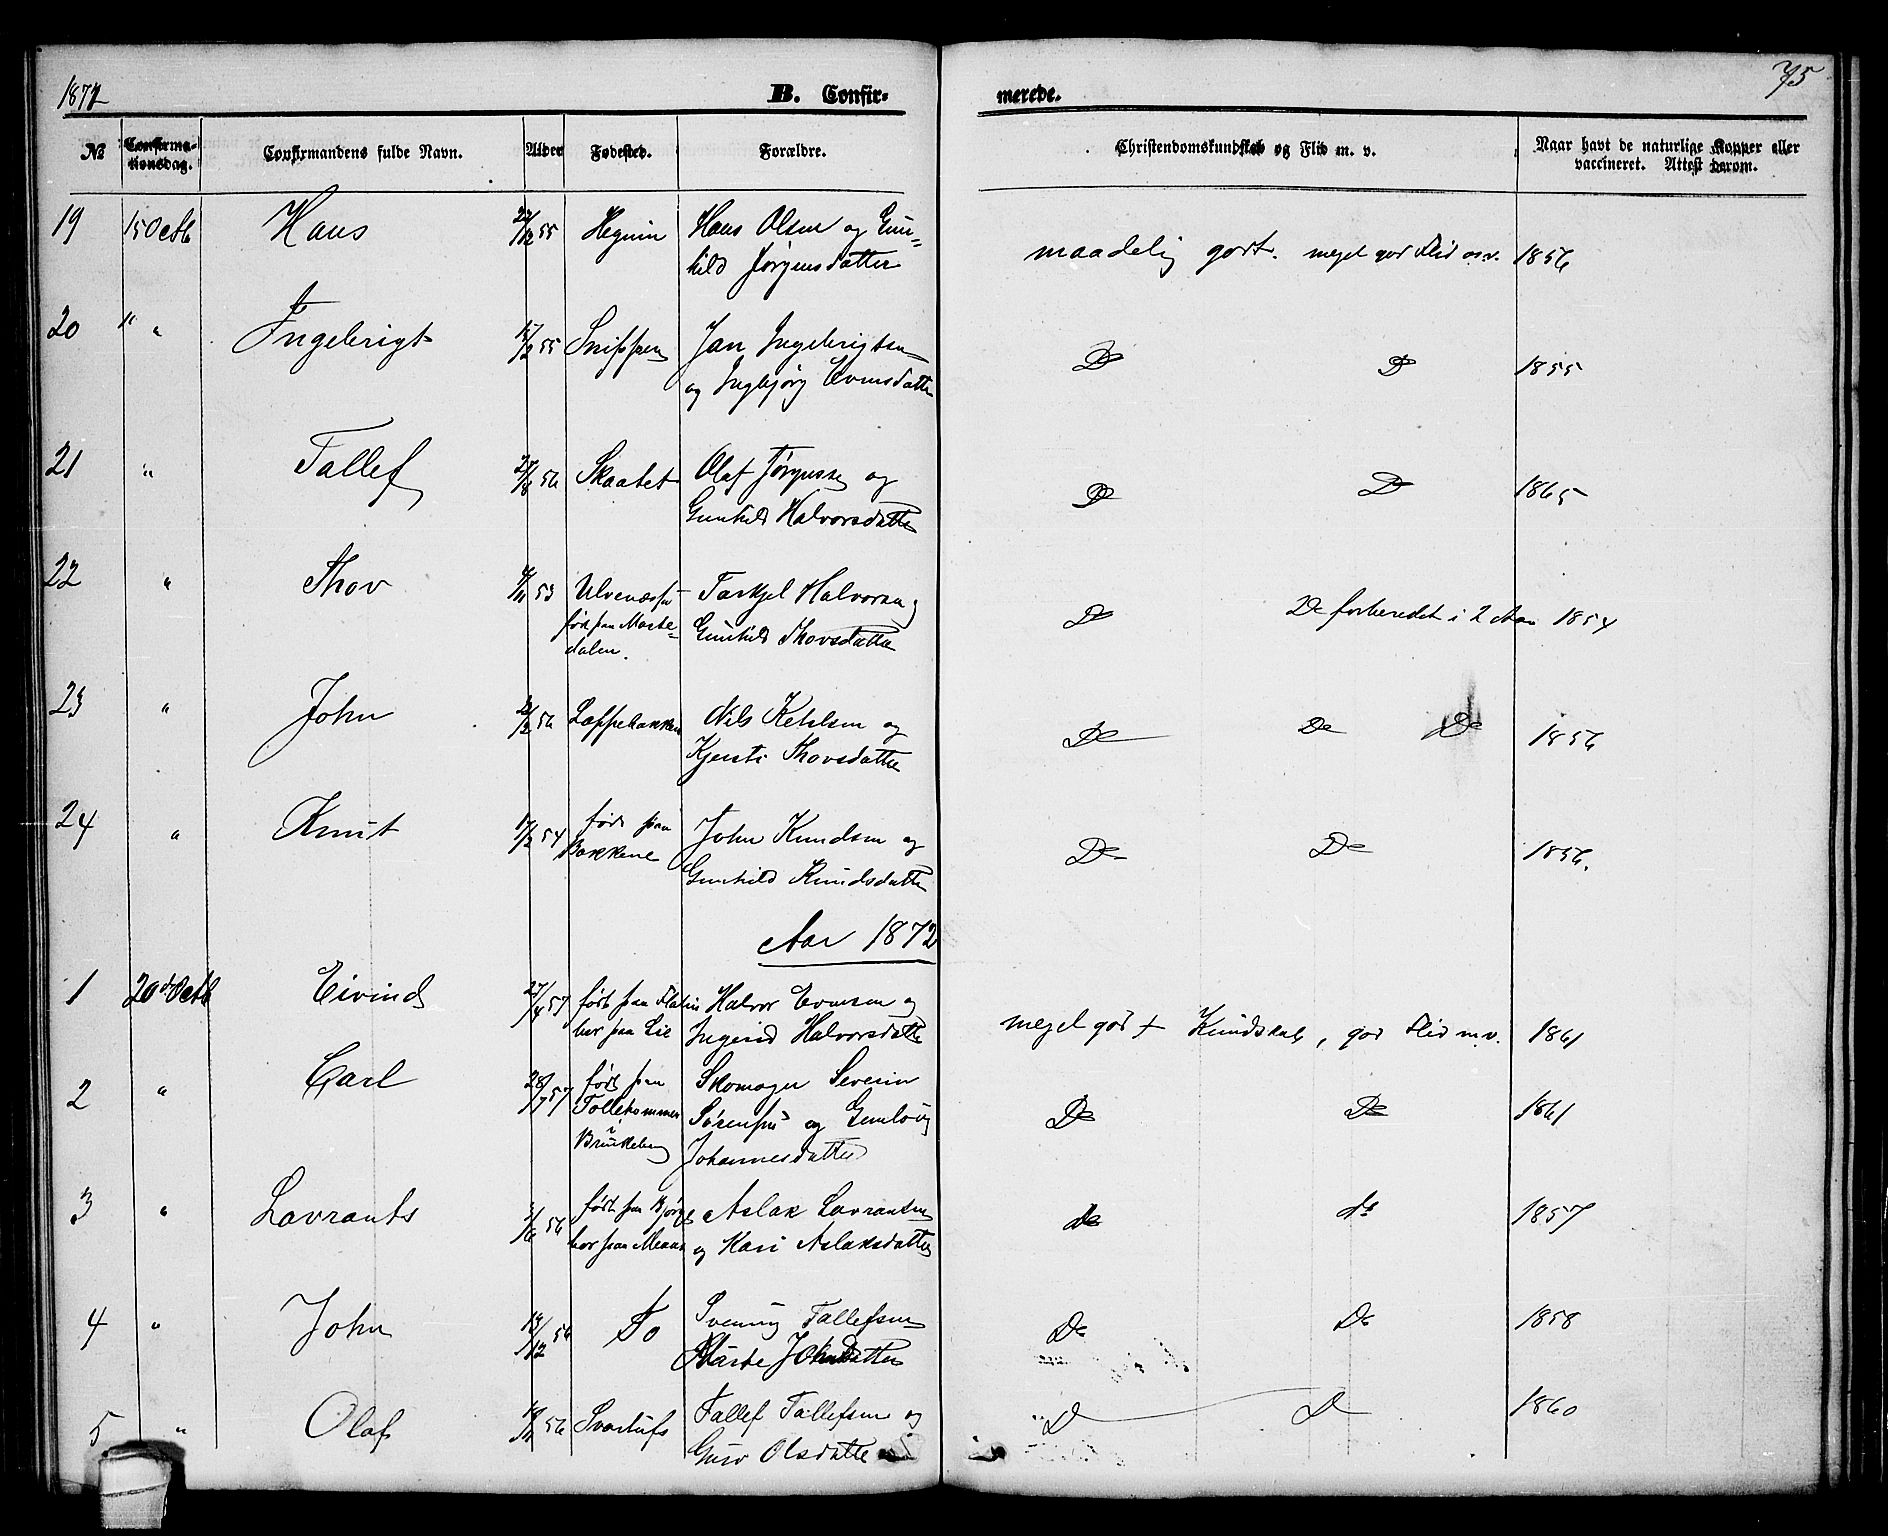 1871
B. Confir-
merede.
75
№
Confirma-
tionsdag.
Confirmandens fulde Navn.
Alder
Fødested.
Forældre.
Christendomskundskab og Flid m. v.
Naar havt de naturlige Kopper eller
vaccineret. Attest derom.
19 15 Octb Hans 27/12 55 Hegnin Hans Olsen og Gun-
hild Jørgensdatter
maadelig godt. meget god Flid m.v. 1856
20 " " Ingebrigt 15/2 55 Snippen Jan Ingebrigtsen
og Ingbjørg Evensdatter
Do Do 1855
21 " Tallef 27/8 56 Skaatet Olaf Jørgensen og
Gunhild Halvorsdatter
Do Do 1865
22 " Thov 4/11 53 Ulvenæs
født paa Moste-
dalen.
Tarkjel Halvorsen
Gunhild Thovsdatter
Do Do forberedet i 2 Aar 1854
23 " John 2/2 56 Loppebakken Nils Ketilsen og
Kjersti Thovsdatter
Do Do Do 1856
24 " Knut 17/2 54 født paa
Bakkene
John Knudsen og
Gunhild Knudsdatter
Do Do 1856.
Aar 1872
1 20de Octb Eivind 27/4 57 født paa Flatin Halvor Evensen og
bor paa Lie Ingerid Halvorsdatter
meget godt Kundskab, god Flid m.v. 1861
2 " Carl 28/7 57 født paa Skomager Severin
Tollekammer Sørensen og Gunlaug
i
Brunkeberg Johannesdatter
Do Do 1861
3 " Lavrants 3/6 56 født paa Bjørge Aslak Lavrantsen
bor paa Meaas og Kari Aslaksdatter
do do 1857
4 " John 19/12 56 Bo Svenung Tallefsen
Marte Johnsdatter
Do Do 1858
5 " Olaf 56 Svartufs Tallef Tallefsen og
Guro Olsdatter
D D 1860